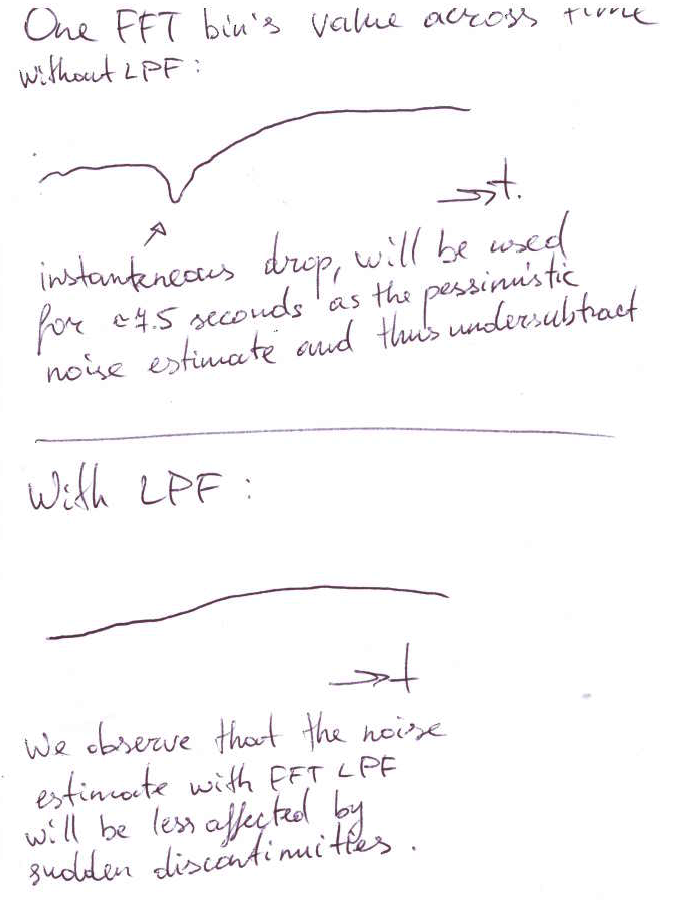 One FFT bin's value across time
without LPF:
t.
instantaneous drop, will be used
for ~7.5 seconds as the pessimistic
noise estimate and thus undersubtract
With LPF:
t
We observe that the noise
estimate with FFT LPF
will be less affected by
sudden discontinuities.